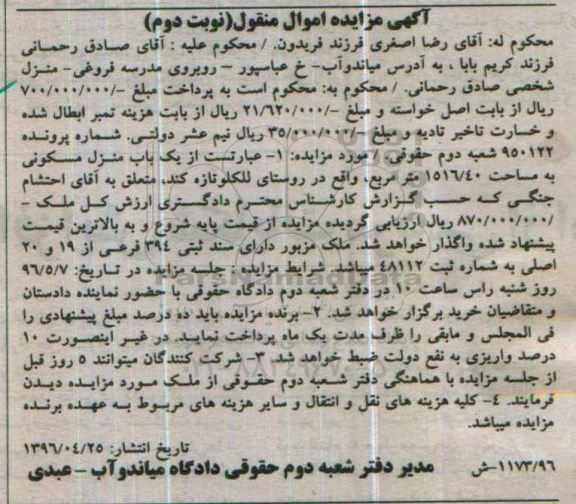 آگهی مزایده اموال منقول(نوبت دوم)
محکوم له: آقای رضا اصغری فرزند فریدون. / محکوم علیه : آقای صادق رحمانی
فرزند کریم بابا ، به آدرس میاندوآب- خ عباسپور – روبروی مدرسه فروغی- منزل
شخصی صادق رحمانی. / محکوم به: محکوم است به پرداخت مبلغ -/۷۰۰/۰۰۰/۰۰۰
ریال از بابت اصل خواسته و مبلغ -/۲۱/۶۲۰/۰۰۰ ریال از بابت هزینه تمبر ابطال شده
و خسارت تاخیر تادیه و مبلغ -/۳۵/۰۰۰/۰۰۰ ریال نیم عشر دولتی. شماره پرونده
۹۵۰۱۲۲ شعبه دوم حقوقی. / مورد مزایده: ۱- عبارتست از یک باب منزل مسکونی
به مساحت ۱۵۱۶/۴۰ متر مربع، واقع در روستای للکلوتازه کند، متعلق به آقای احتشام
جنگی که حسب گزارش کارشناس محترم دادگستری ارزش کل ملک -
/۸۷۰/۰۰۰/۰۰۰ ریال ارزیابی گردیده مزایده از قیمت پایه شروع و به بالاترین قیمت
پیشنهاد شده واگذار خواهد شد. ملک مزبور دارای سند ثبتی ۳۹۴ فرعی از ۱۹ و ۲۰
اصلی به شماره ثبت ۴۸۱۱۲ میباشد. شرایط مزایده : جلسه مزایده در تاریخ: ۹۶/۵/۷
روز شنبه راس ساعت ۱۰ در دفتر شعبه دوم دادگاه حقوقی با حضور نماینده دادستان
و متقاضیان خرید برگزار خواهد شد. ۲- برنده مزایده باید ده درصد مبلغ پیشنهادی را
فی المجلس و مابقی را ظرف مدت یک ماه پرداخت نماید. در غیر اینصورت ۱۰
درصد واریزی به نفع دولت ضبط خواهد شد. ۳- شرکت کنندگان میتوانند ۵ روز قبل
از جلسه مزایده با هماهنگی دفتر شعبه دوم حقوقی از ملک مورد مزایده دیدن
فرمایند. ۴- کلیه هزینه های نقل و انتقال و سایر هزینه های مربوط به عهده برنده
مزایده میباشد.
تاریخ انتشار: ۱۳۹۶/۰۴/۲۵
۱۱۷۳/۹۶-ش مدیر دفتر شعبه دوم حقوقی دادگاه میاندوآب - عبدی